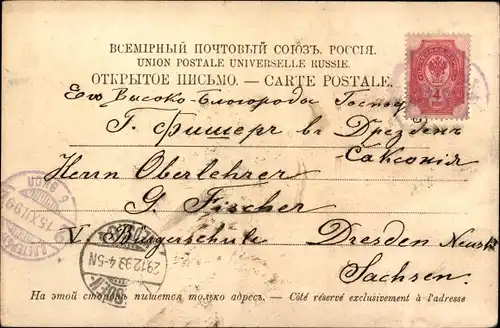 ВСЕМІРНЫЙ ПОЧТОВЫЙ СОЮЗЪ. РОССІЯ.
UNION POSTALE UNIVERSELLE RUSSIE.
ОТКРЫТОЕ ПИСЬМО. — CARTE POSTALE.
Его Высоко-Благородію
Г. Фишеръ въ Дрезденъ
Саксонія
Herrn Oberlehrer
G. Fischer
V Bürgerschule Dresden Neust
Sachsen.
На этой сторонѣ пишется только адресъ. — Côté réservé exclusivement à l'adresse
4
29.12.99 4-5N